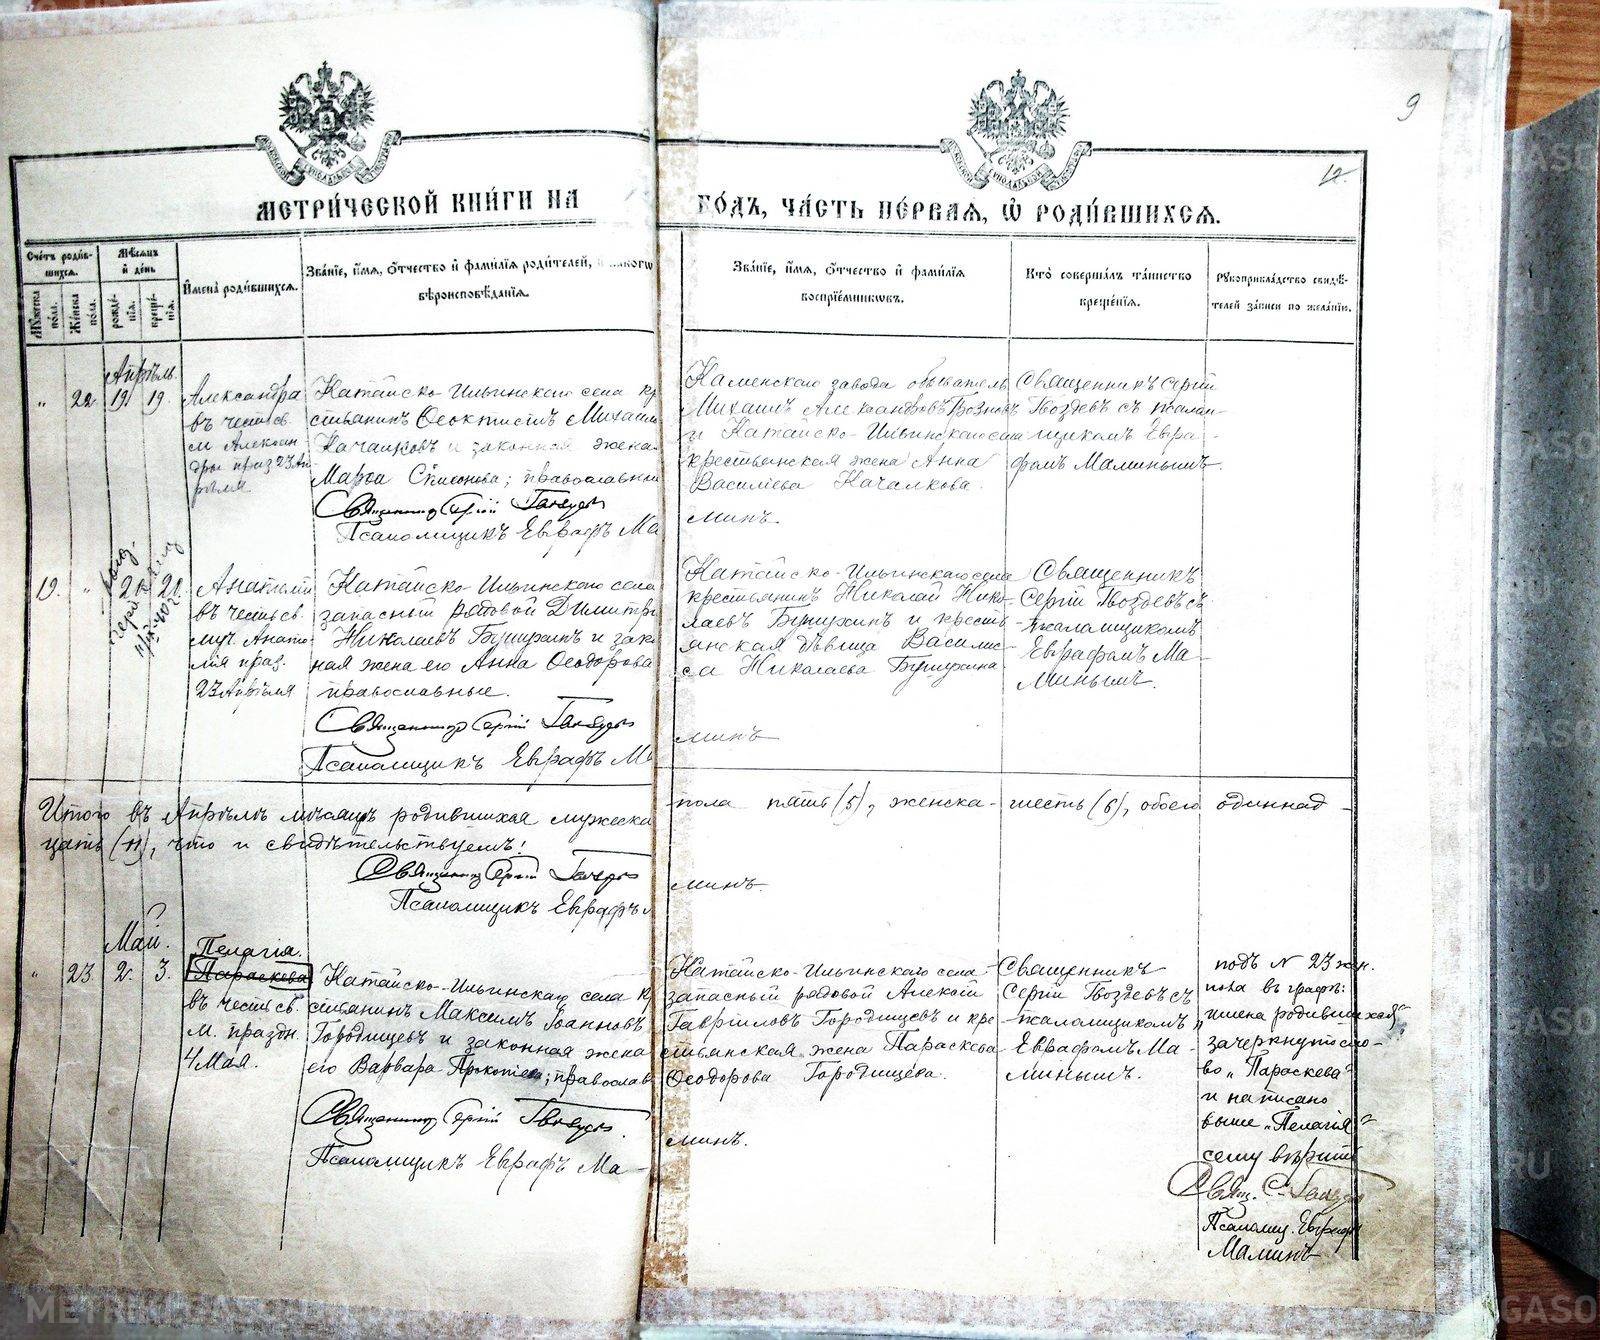 9
12.
МЕТРИ́ЧЕСКОЙ КНИ́ГИ НА ГО́ДЪ, ЧА́СТЬ ПЕ́РВАЯ, Ѽ РОДИ́ВШИХСЯ.
Сче́тъ роди́вшихся.
Му́жеска пола.
Же́нска пола.
Мѣ́сяцъ и҆ де́нь
рожде́нїя.
креще́нїя.
И҆мена̀ роди́вшихся.
Зва́нїе, и҆́мя, ѻ҆́тчество и҆ фами́лїя роди́телей, и҆ како́гѡ
вѣроисповѣ́данїя.
Зва́нїе, и҆́мя, ѻ҆́тчество и҆ фами́лїя
воспрїе́мникѡвъ.
Кто̀ соверша́лъ та́инство
креще́нїя.
Рꙋкоприкла́дство свидѣ́-
телей за́писи по жела́нїю.
Апрѣль.
„ 22 19. 19.
Александра
въ честь св.
м. Алексан
дры празд. 23 Ап
рѣля
Катайско-Ильинскаго села кр
стьянинъ Ѳеоктистъ Михаило
Качалковъ и законная жена
Марѳа Симонова; православны
Священникъ Сергій Гвоздевъ
Псаломщикъ Евграфъ Ма
Каменскаго завода обыватель
Михаилъ Александровъ
и Катайско-Ильинскаго села
крестьянская жена Анна
Василіева Качалкова.
минъ.
Священникъ Сергій
Гвоздевъ съ псалом-
щикомъ Евгра-
фомъ Маминымъ.
19. „ 20. 20.
Анатолій
въ честь св.
муч. Анато-
лія празд.
23 Апрѣля
Катайско-Ильинскаго села
запасный рядовой Димитрі
Николаевъ Бушухинъ и зако
ная жена его Анна Ѳеодорова
православные.
Священникъ Сергій Гвоздевъ
Псаломщикъ Евграфъ Ма
Катайско-Ильинскаго села
крестьянинъ Николай Нико-
лаевъ Бушухинъ и кресть-
янская дѣвица Василис-
са Николаева Бушухина
минъ
Священникъ
Сергій Гвоздевъ съ
псаломщикомъ
Евграфомъ Ма-
минымъ.
Итого въ Апрѣлѣ мѣсяцѣ родившихся мужеска пола пять (5), женска- шесть (6), обоего одиннад-
цать (11), что и свидѣтельствуемъ!
Священникъ Сергій Гвоздевъ
Псаломщикъ Евграфъ Маминъ.
Май.
„ 23. 2. 3.
Пелагія.
Параскева
въ честь св.
м. праздн.
4 Мая.
Катайско-Ильинскаго села кр
стьянинъ Максимъ Іоанновъ
Городищевъ и законная жена
его Варвара Прокопіева; православ
Священникъ Сергій Гвоздевъ.
Псаломщикъ Евграфъ Ма-
Катайско-Ильинскаго села
запасный рядовой Алексій
Гавріиловъ Городищевъ и кре
стьянская жена Параскева
Ѳеодорова Городищева.
минъ.
Священникъ
Сергій Гвоздевъ съ
псаломщикомъ
Евграфомъ Ма-
минымъ.
подъ № 23 жен.
пола въ графѣ:
„имена родившихся“
зачеркнуто сло-
во „Параскева“
и написано
выше „Пелагія“
сему вѣримъ
Свящ. С. Гвоздевъ
Псаломщ. Евграфъ
Маминъ
METRIKI.GASO.RU